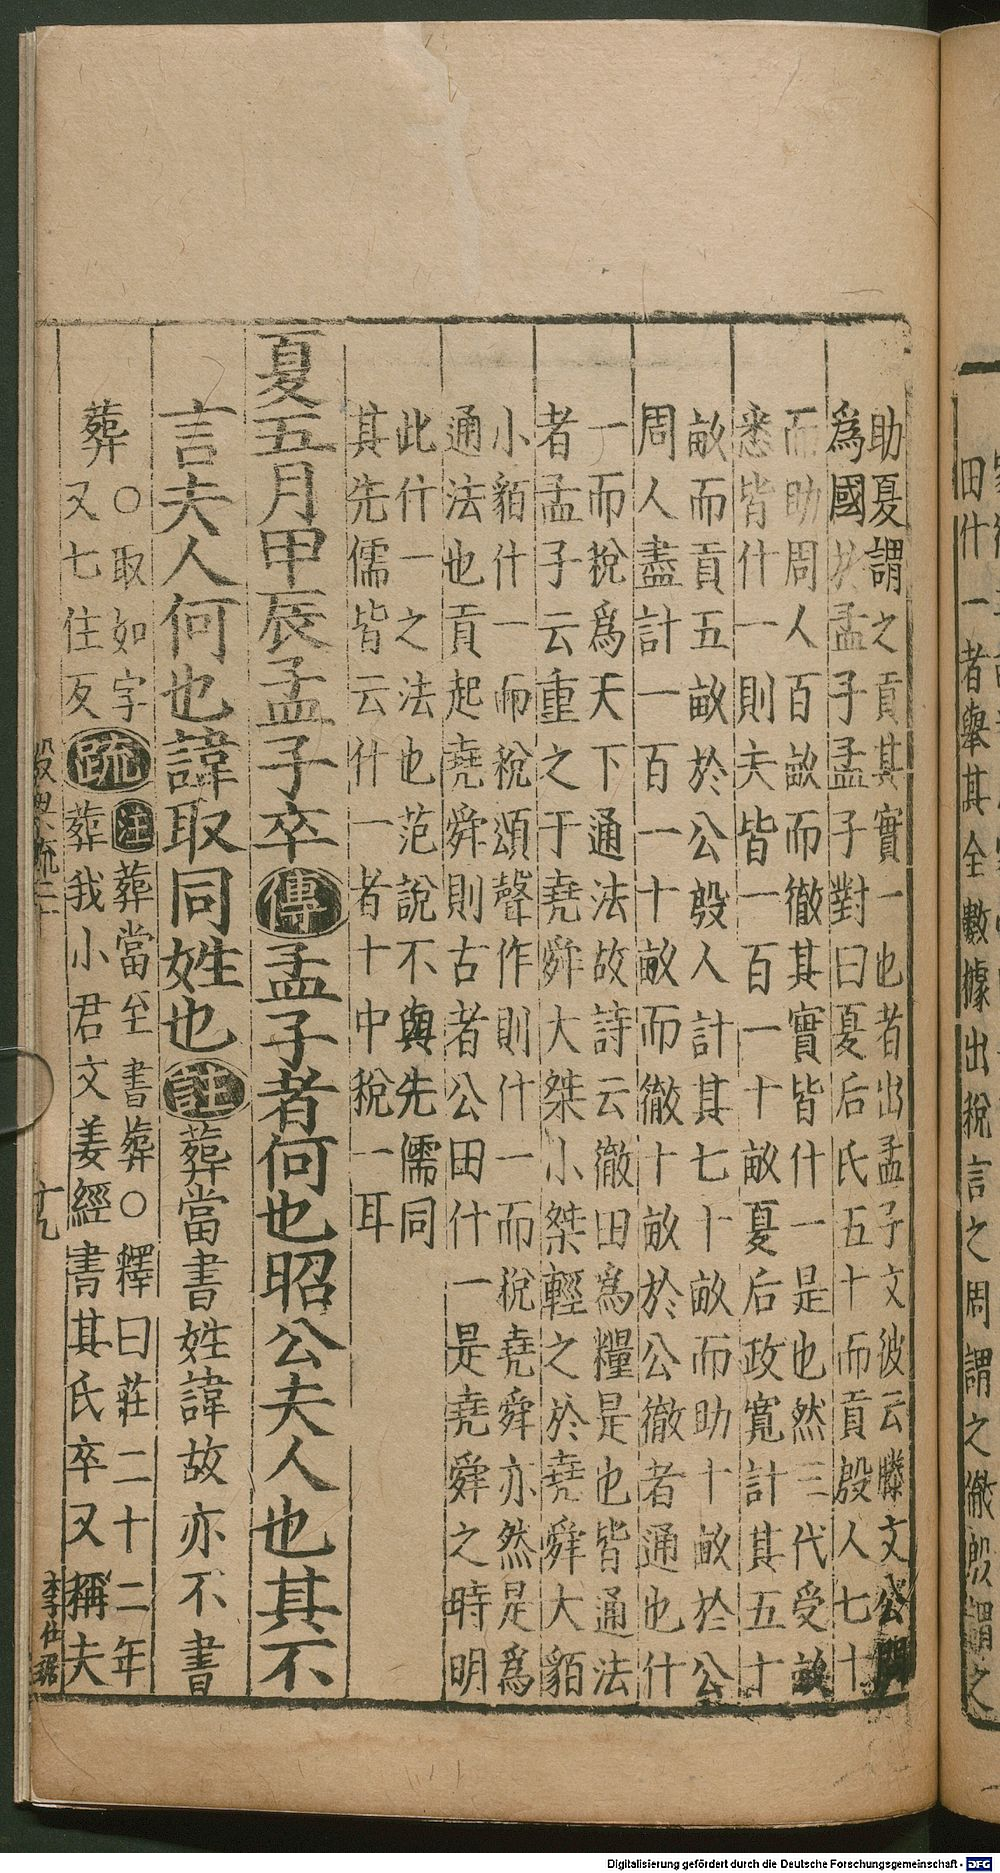 助夏謂之貢其實一也者出孟子文彼云滕文公問
爲國於孟子孟子對曰夏后氏五十而貢殷人七十
而助周人百畝而徹其實皆什一是也然三代受畝
悉皆什一則夫皆一百一十畝夏后政寬計其五十
畝而貢五畝於公殷人計其七十畝而助十畝於公
周人盡計一百一十畝而徹十畝於公徹者通也什
一而稅爲天下通法故詩云徹田爲糧是也皆通法
者孟子云重之于堯舜大桀小桀輕之於堯舜大貊
小貊什一而稅頌聲作則什一而稅堯舜亦然是爲
通法也貢起堯舜則古者公田什一是堯舜之時明
此什一之法也范說不與先儒同
其先儒皆云什一者十中稅一耳
夏五月甲辰孟子卒傳孟子者何也昭公夫人也其不
言夫人何也諱取同姓也註葬當書姓諱故亦不書
葬○取如字
又七住反
疏注葬當至書葬○釋曰莊二十二年
葬我小君文姜經書其氏卒又稱夫
十九
李仕琚
田什一者舉其全數據出稅言之周謂之徹殷謂之
Digitalisierung gefördert durch die Deutsche Forschungsgemeinschaft - DFG